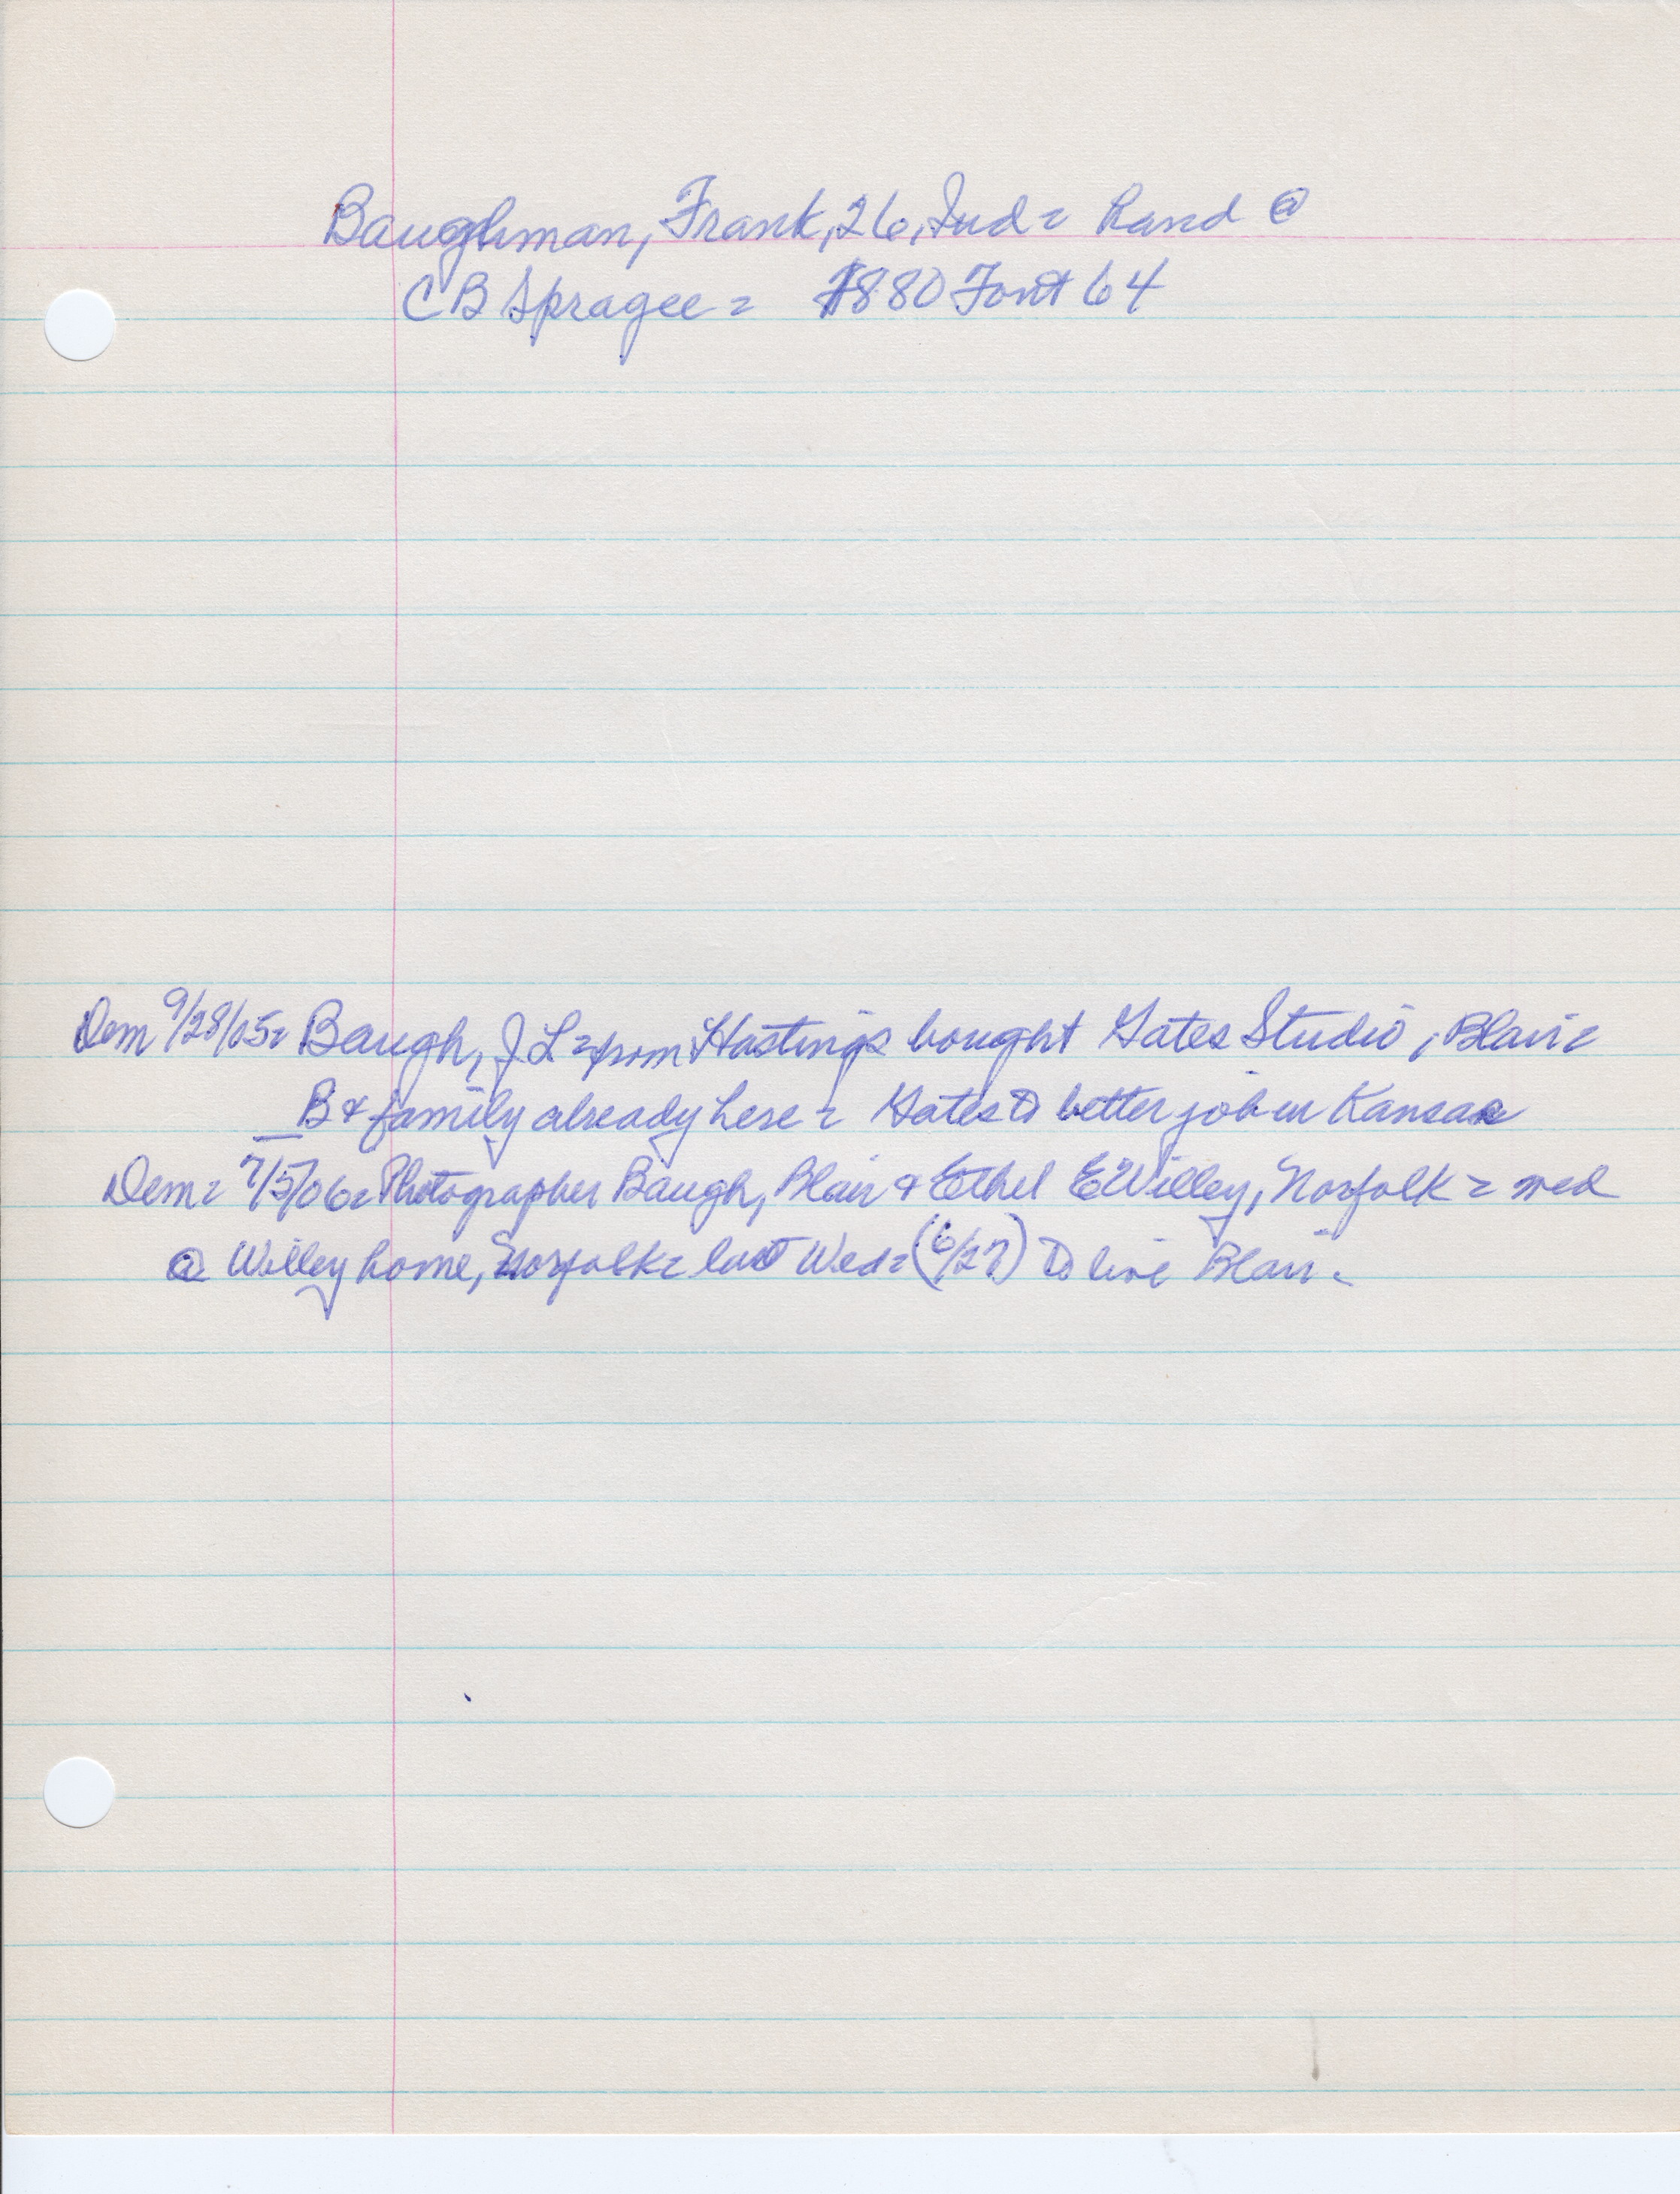 Baughman, Frank, 26, Ind = Rand @
CB Spragee = 1880 Font 64
Dem 9/28/05= Baugh, J L = from Hastings bought Gates Studio, Blair=
B & family already here = Gates to better job in Kansas
Dem= 7/5/06= Photographer Baugh, Blair & Ethel E Willey, Norfolk = wed
@ Willey home, Norfolk= last Wed= (6/27) To live Blair.